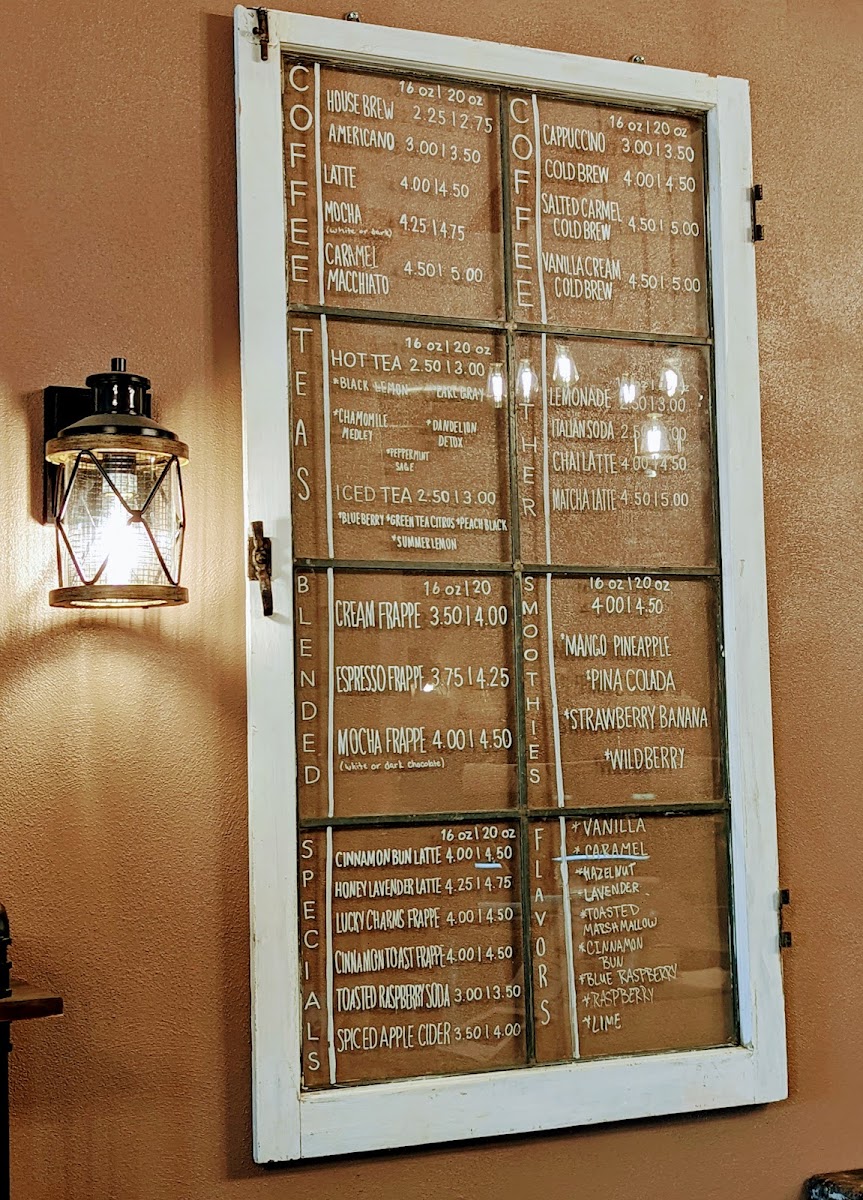 COFFEE
16 oz | 20 oz
HOUSE BREW 2.25 | 2.75
AMERICANO 3.00 | 3.50
LATTE 4.00 | 4.50
MOCHA 4.25 | 4.75
(white or dark)
CARAMEL
MACCHIATO 4.50 | 5.00
COFFEE
16 oz | 20 oz
CAPPUCCINO 3.00 | 3.50
COLD BREW 4.00 | 4.50
SALTED CARMEL
COLD BREW 4.50 | 5.00
VANILLA CREAM
COLD BREW 4.50 | 5.00
TEAS
16 oz | 20 oz
HOT TEA 2.50 | 3.00
*BLACK LEMON EARL GRAY
*CHAMOMILE
MEDLEY
*DANDELION
DETOX
*PEPPERMINT
SAGE
ICED TEA 2.50 | 3.00
*BLUEBERRY *GREEN TEA CITRUS *PEACH BLACK
*SUMMER LEMON
THER
LEMONADE 3.00
ITALIAN SODA
CHAI LATTE 4.00 | 4.50
MATCHA LATTE 4.50 | 5.00
BLENDED
16 oz | 20
CREAM FRAPPE 3.50 | 4.00
ESPRESSO FRAPPE 3.75 | 4.25
MOCHA FRAPPE 4.00 | 4.50
(white or dark chocolate)
SMOOTHIES
16 oz | 20 oz
4.00 | 4.50
*MANGO PINEAPPLE
*PINA COLADA
*STRAWBERRY BANANA
*WILDBERRY
SPECIALS
16 oz | 20 oz
CINNAMON BUN LATTE 4.00 | 4.50
HONEY LAVENDER LATTE 4.25 | 4.75
LUCKY CHARMS FRAPPE 4.00 | 4.50
CINNAMON TOAST FRAPPE 4.00 | 4.50
TOASTED RASPBERRY SODA 3.00 | 3.50
SPICED APPLE CIDER 3.50 | 4.00
FLAVORS
*VANILLA
*CARAMEL
*HAZELNUT
*LAVENDER
*TOASTED
MARSHMALLOW
*CINNAMON
BUN
*BLUE RASPBERRY
*RASPBERRY
*LIME